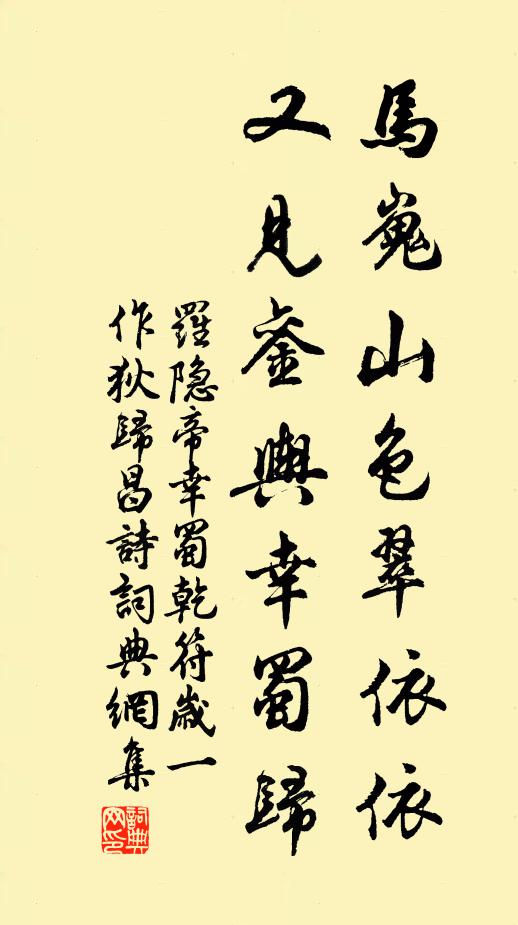 馬嵬山色翠依依
又見銮輿幸蜀歸
羅隐帝幸蜀乾符歲一
作狄歸昌詩詞典網集
詞典网印